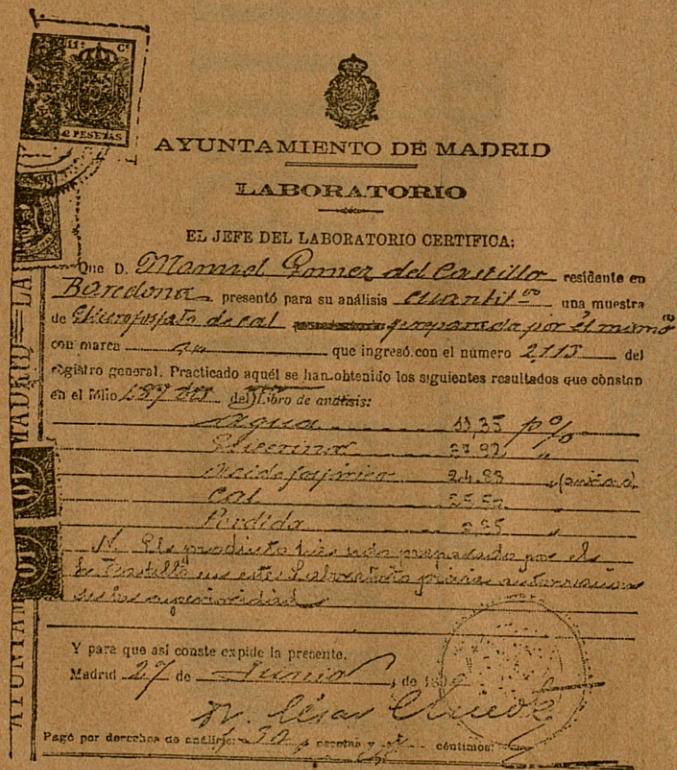 2 PESETAS
AYUNTAMIENTO DE MADRID
LABORATORIO
EL JEFE DEL LABORATORIO CERTIFICA:
Que D. Manuel Gomez del Castillo residente en
Barcelona presentó para su análisis cuantit.vo una muestra
de Glicerofosfato de cal preparada por él mismo
con marca que ingresó con el numero 2115 del
registro general. Practicado aquél se han obtenido los siguientes resultados que constan
en el folio del libro de análisis:
Agua p%
Glicerina 27,92 "
Acido fosfórico 24,88 "
Cal 25,50
Perdida "
N. El producto ha sido preparado por el
Sr Castillo en este Laboratorio previa autorización
de la superioridad
Y para que así conste expide la presente.
Madrid 27 de Junio de 18
Dr. César Chicote
Pagó por derechos de análisis: 50 pesetas y céntimos
AYUNTAM
MADRID
LA